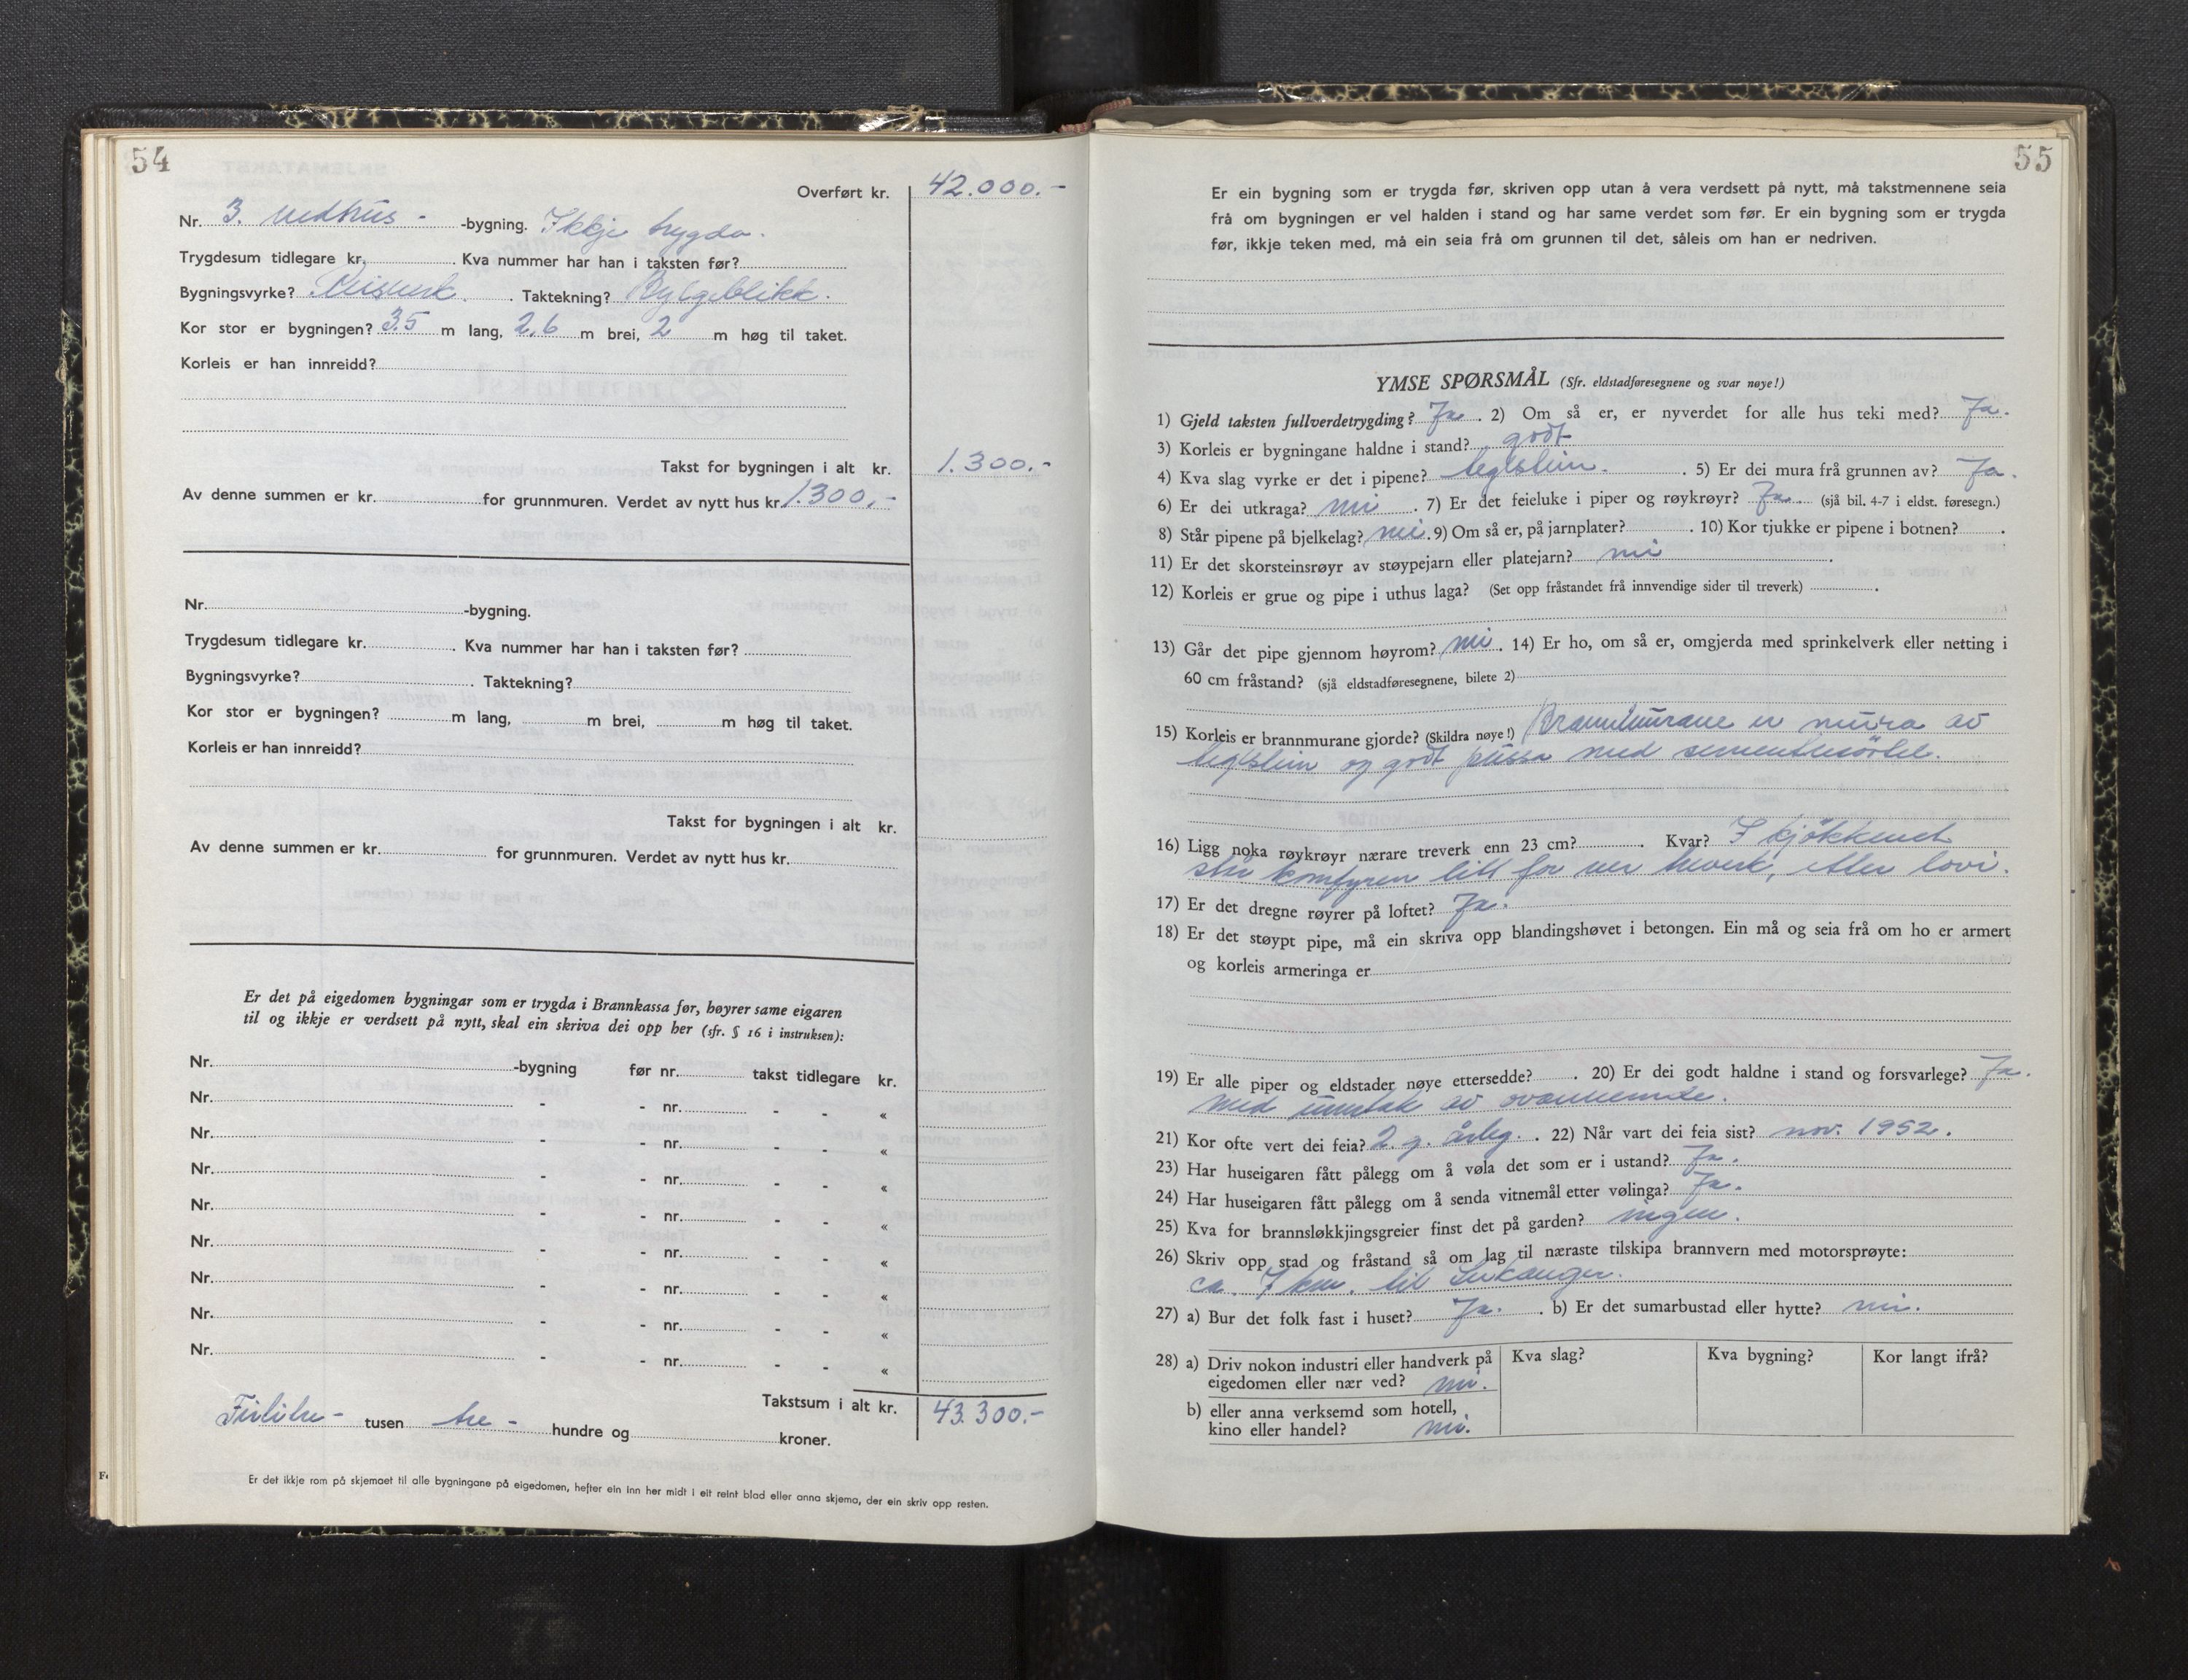 54
Overført kr. 42.000.-
Nr. 3. vedhus - -bygning. Ikkje trygda.
Trygdesum tidlegare kr. . Kva nummer har han i taksten før?
Bygningsvyrke? Reisverk. . Taktekning? Bylgeblikk.
Kor stor er bygningen? 3.5 m lang, 2,6 m brei, 2 m høg til taket.
Korleis er han innreidd?
Takst for bygningen i alt kr. 1.300.-
Av denne summen er kr. for grunnmuren. Verdet av nytt hus kr. 1.300.-
Nr. -bygning.
Trygdesum tidlegare kr. . Kva nummer har han i taksten før?
Bygningsvyrke? . Taktekning?
Kor stor er bygningen? m lang, m brei, m høg til taket.
Korleis er han innreidd?
Takst for bygningen i alt kr.
Av denne summen er kr. for grunnmuren. Verdet av nytt hus kr.
Er det på eigedomen bygningar som er trygda i Brannkassa før, høyrer same eigaren
til og ikkje er verdsett på nytt, skal ein skriva dei opp her (sfr. § 16 i instruksen):
Nr. -bygning før nr. takst tidlegare kr.
Nr. - - nr. - - «
Nr. - - nr. - - «
Nr. - - nr. - - «
Nr. - - nr. - - «
Nr. - - nr. - - «
Nr. - - nr. - - «
Nr. - - nr. - - «
Nr. - - nr. - - «
Takstsum i alt kr. 43.300.-
Førtitre - tusen tre - hundre og kroner.
Er det ikkje rom på skjemaet til alle bygningane på eigedomen, hefter ein inn her midt i eit reint blad eller anna skjema, der ein skriv opp resten.
55
Er ein bygning som er trygda før, skriven opp utan å vera verdsett på nytt, må takstmennene seia
frå om bygningen er vel halden i stand og har same verdet som før. Er ein bygning som er trygda
før, ikkje teken med, må ein seia frå om grunnen til det, såleis om han er nedriven.
YMSE SPØRSMÅL (Sfr. eldstadføresegnene og svar nøye!)
1) Gjeld taksten fullverdetrygding? Ja . 2) Om så er, er nyverdet for alle hus teki med? Ja.
3) Korleis er bygningane haldne i stand? godt
4) Kva slag vyrke er det i pipene? teglstein. . 5) Er dei mura frå grunnen av? Ja.
6) Er dei utkraga? nei . 7) Er det feieluke i piper og røykrøyr? Ja. (sjå bil. 4-7 i eldst. føresegn.)
8) Står pipene på bjelkelag? nei. 9) Om så er, på jarnplater? . 10) Kor tjukke er pipene i botnen? .
11) Er det skorsteinsrøyr av støypejarn eller platejarn? nei .
12) Korleis er grue og pipe i uthus laga? (Set opp fråstandet frå innvendige sider til treverk) .
13) Går det pipe gjennom høyrom? nei . 14) Er ho, om så er, omgjerda med sprinkelverk eller netting i
60 cm fråstand? (sjå eldstadføresegnene, bilete 2)
15) Korleis er brannmurane gjorde? (Skildra nøye!) Brannmurane er mura av
teglstein og godt pussa med sementmörtel.
16) Ligg noka røykrøyr nærare treverk enn 23 cm? . Kvar? I kjökkenet
står komfyren litt for nær treverk, etter lovi.
17) Er det dregne røyrer på loftet? Ja.
18) Er det støypt pipe, må ein skriva opp blandingshøvet i betongen. Ein må og seia frå om ho er armert
og korleis armeringa er
19) Er alle piper og eldstader nøye ettersedde? . 20) Er dei godt haldne i stand og forsvarlege? Ja.
med unntak av ovannemnde.
21) Kor ofte vert dei feia? 2 g. årleg. . 22) Når vart dei feia sist? nov. 1952.
23) Har huseigaren fått pålegg om å vøla det som er i ustand? Ja.
24) Har huseigaren fått pålegg om å senda vitnemål etter vølinga? Ja.
25) Kva for brannsløkkjingsgreier finst det på garden? ingen.
26) Skriv opp stad og fråstand så om lag til næraste tilskipa brannvern med motorsprøyte:
ca. 7 km. til Leikanger.
27) a) Bur det folk fast i huset? Ja. . b) Er det sumarbustad eller hytte? nei.
28) a) Driv nokon industri eller handverk på Kva slag? Kva bygning? Kor langt ifrå?
eigedomen eller nær ved? nei.
b) eller anna verksemd som hotell,
kino eller handel? nei.